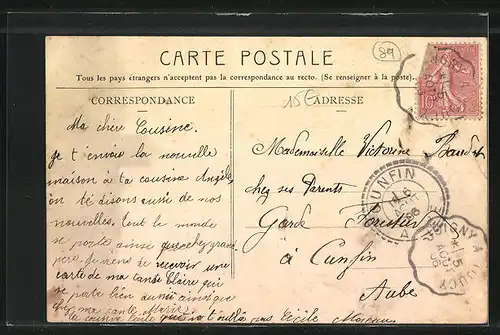 89
CARTE POSTALE
Tous les pays étrangers n'acceptent pas la correspondance au recto. (Se renseigner à la poste).
CORRESPONDANCE
15€
ADRESSE
Ma chère Cousine.
je t'envoie la nouvelle
maison à ta cousine Angèle
on te disons aussi de nos
nouvelles, tout le monde
se porte ainsi que chez grand
père. je viens de recevoir une
carte de ma tante Claire qui
se porte bien aussi ainsi que
chez ma tante Marie.
ta cousine qui t'oublie pas Cécile
Mademoiselle Victorine
chez ses Parents
Garde Forestier
à Cunfin
Aube
10
CUNFIN
6
06
AUBE
IGNY A
5
AOUT
06